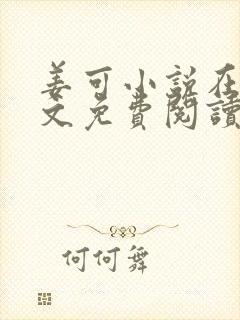 姜可小说在
文免費閱讀
何何舞